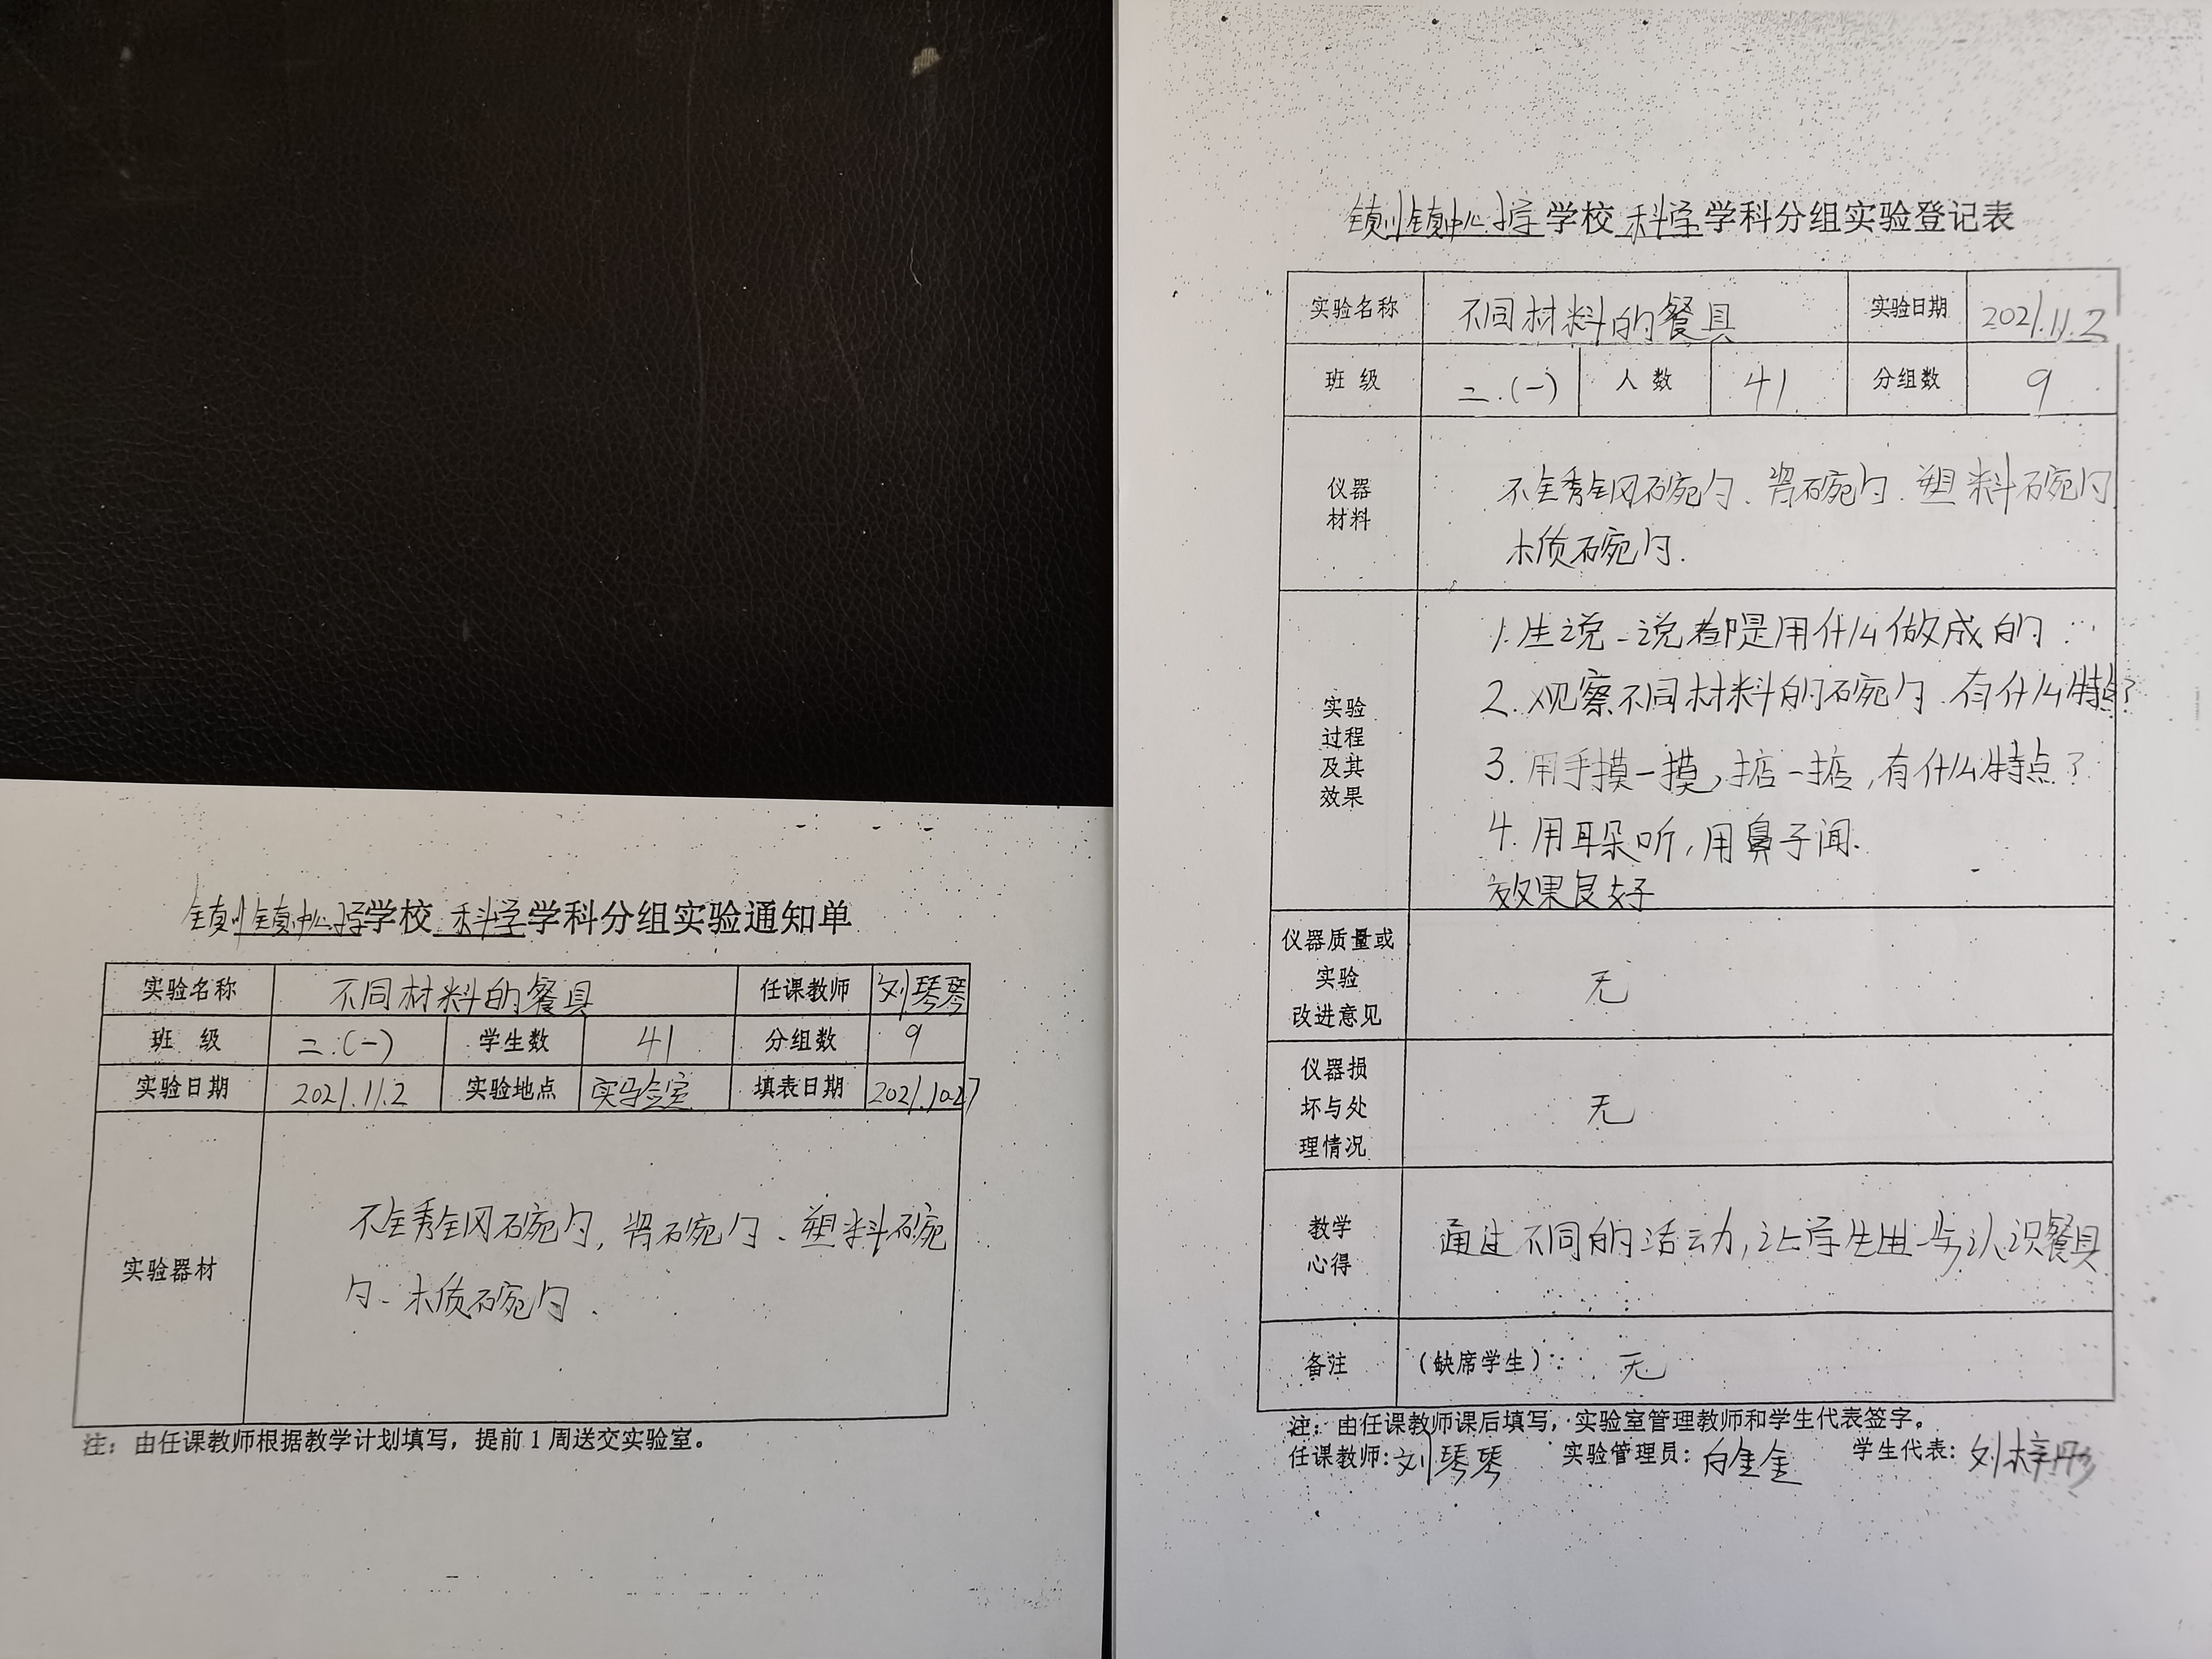 镇川镇中心小学学校科学学科分组实验通知单
实验名称 不同材料的餐具 任课教师 刘琴琴
班 级 二.(一) 学生数 41 分组数 9
实验日期 2021.11.2 实验地点 实验室 填表日期 2021.10.27
实验器材
不锈钢碗勺, 瓷碗勺、塑料碗
勺、木质碗勺.
注：由任课教师根据教学计划填写，提前1周送交实验室。
镇川镇中心小学学校科学学科分组实验登记表
实验名称 不同材料的餐具 实验日期 2021.11.2
班 级 二.(一) 人 数 41 分组数 9
仪器
材料
不锈钢碗勺、瓷碗勺、塑料碗勺
木质碗勺.
实验
过程
及其
效果
1.生说一说都是用什么做成的
2.观察不同材料的碗勺.有什么特点?
3.用手摸一摸,掂一掂,有什么特点?
4.用耳朵听,用鼻子闻.
效果良好
仪器质量或
实验
改进意见
无
仪器损
坏与处
理情况
无
教学
心得
通过不同的活动,让学生进一步认识餐具
备注 （缺席学生）： 无
注：由任课教师课后填写，实验室管理教师和学生代表签字。
任课教师:刘琴琴 实验管理员: 学生代表:刘梓彤